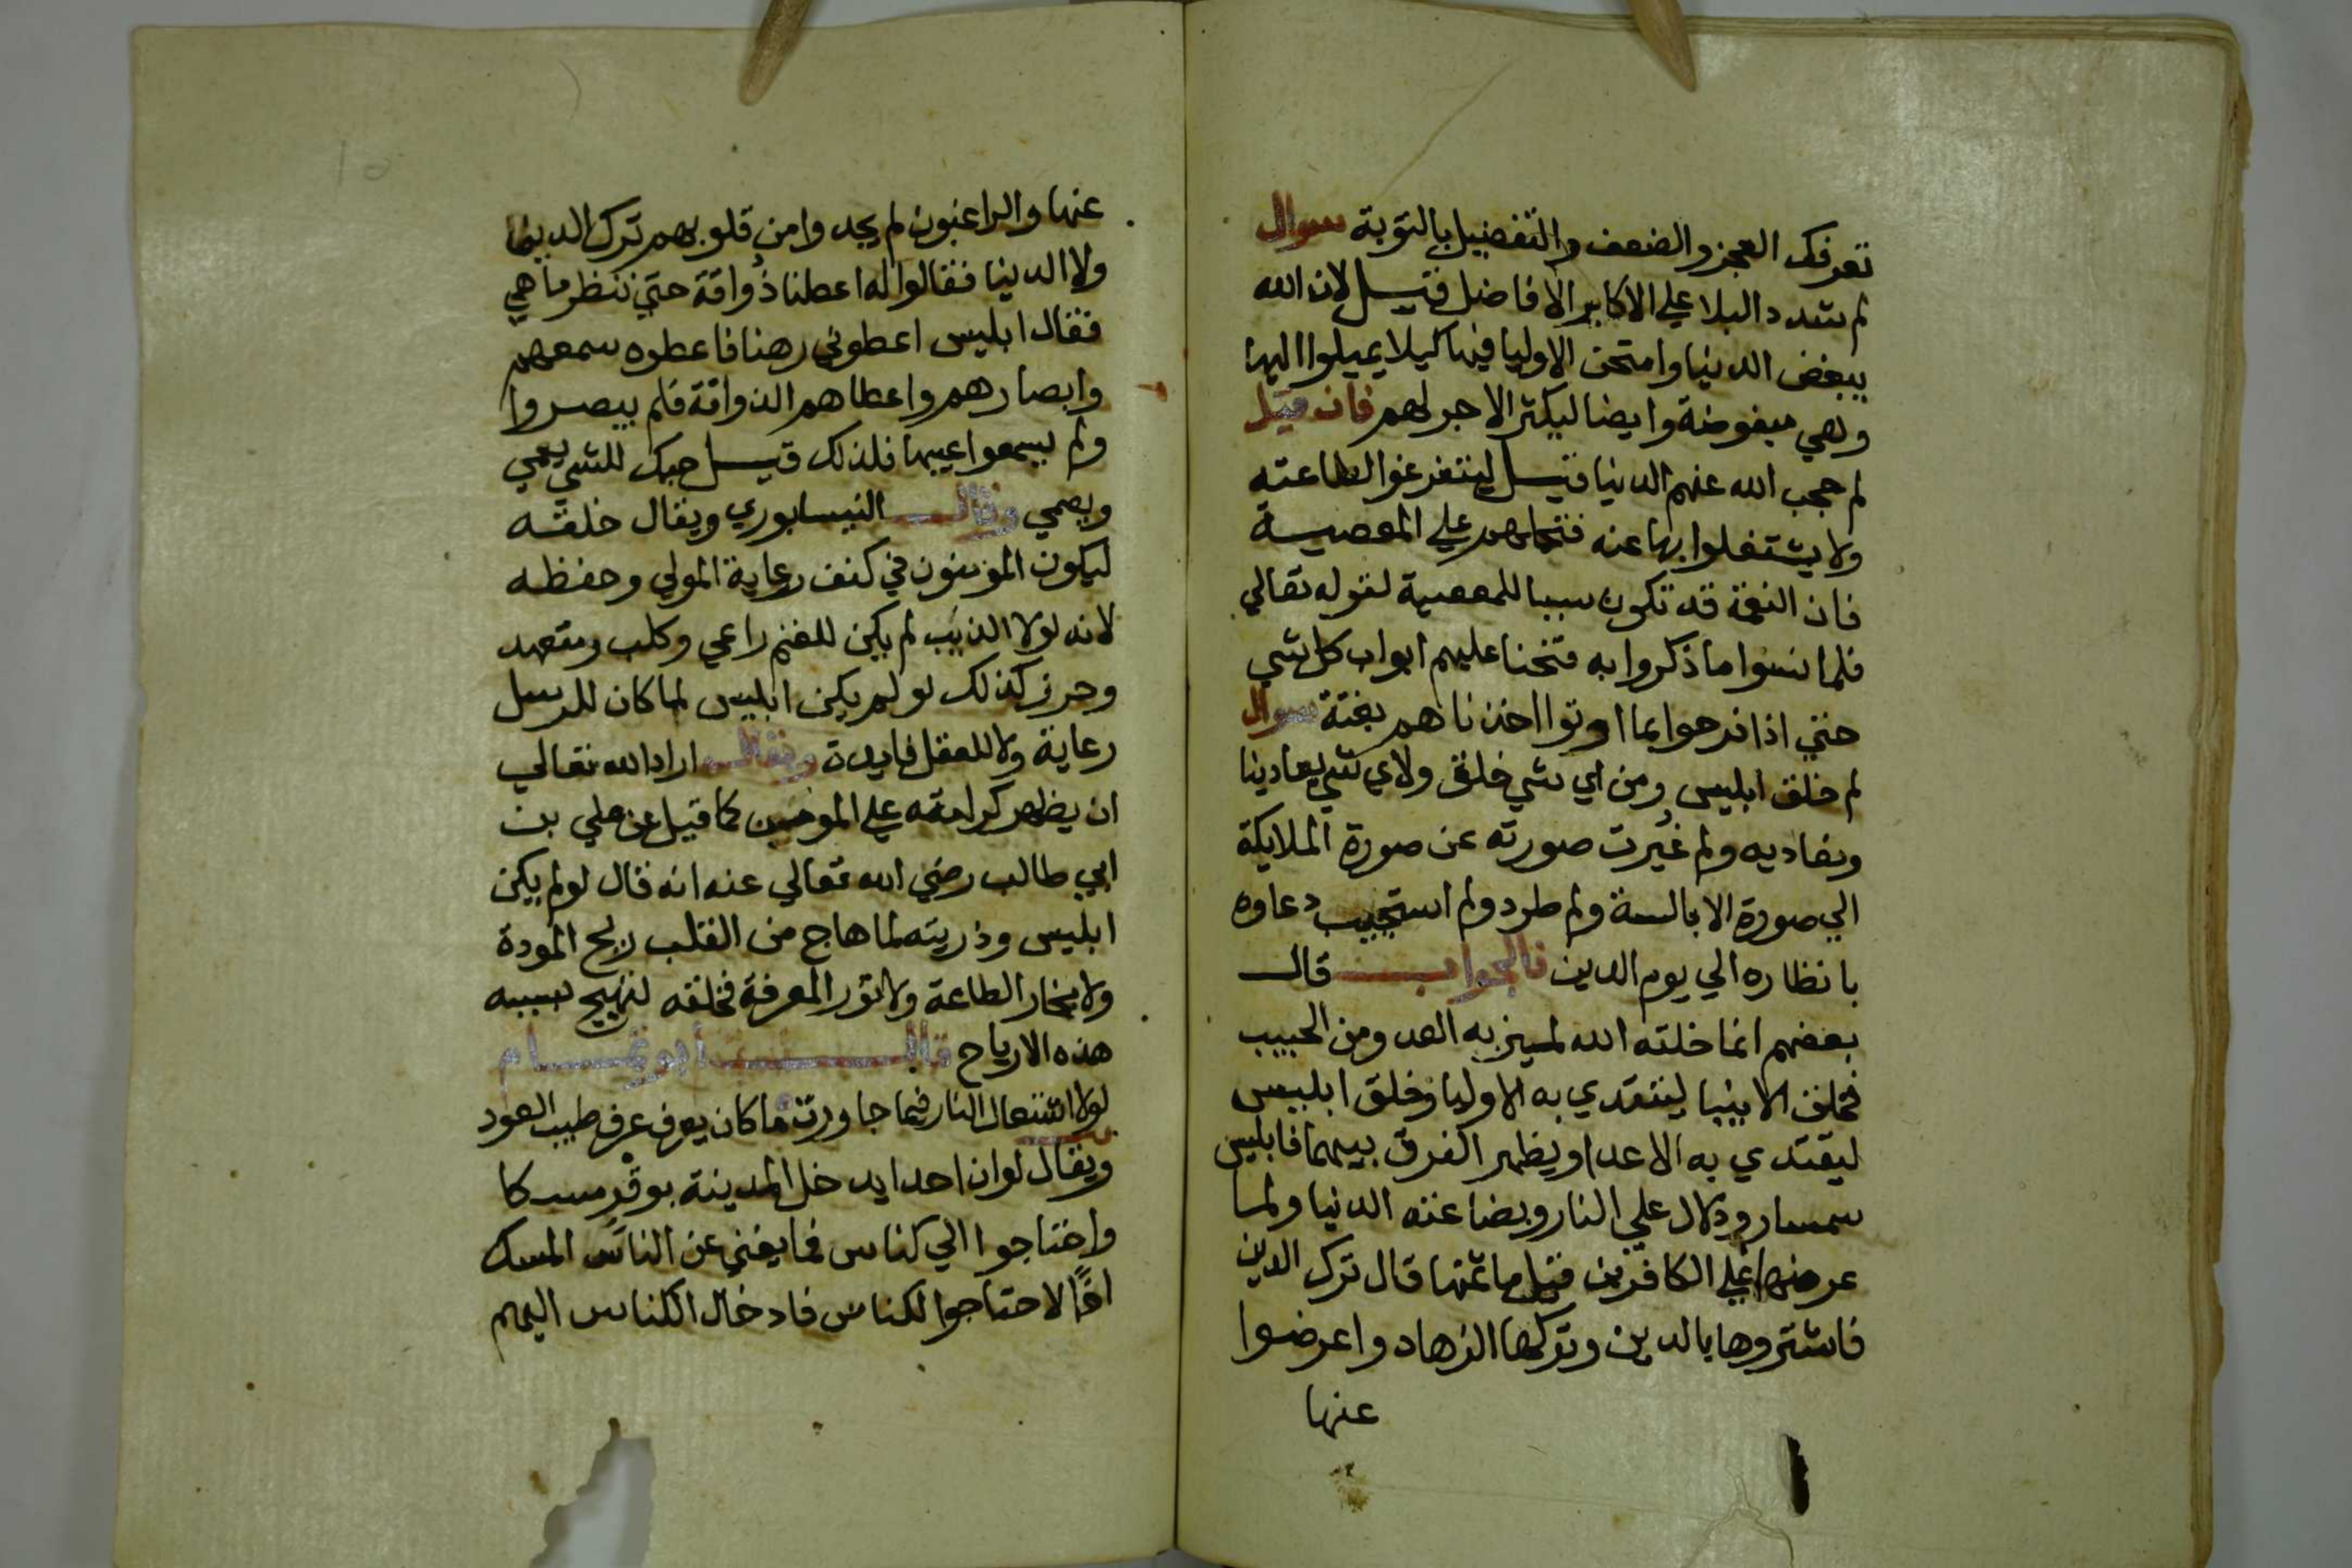 تعرفك العجز والضعف والتفضيل بالتوبة سوال
لم شدد البلا علي الاكابر الافاضل قيل لان الله
يبغض الدنيا وامتحن الاوليا فيها كيلا يميلوا اليها
وهي مبغوضة وايضا ليكثر الاجر لهم فان قيل
لم حجب الله عنهم الدنيا قيل ليتفرغوا لطاعته
ولا يشتغلوا بها عنه على المعصية
فان النعمة قد تكون سببا للمعصية لقوله تعالي
فلما نسوا ما ذكروا به فتحنا عليهم ابواب كل شي
حتي اذا فرحوا بما اوتوا اخذناهم بغتة سوال
لم خلق ابليس ومن اي شي خلق ولاي شي يعادينا
ونعاديه ولم غيرت صورته عن صورة الملايكة
الي صورة الابالسة ولم طرد ولم استجيب دعاوه
بانظاره الي يوم الدين فالجواب قال
بعضهم انما خلقه الله ليميز به العدو من الحبيب
فخلق الانبيا ليقتدي به الاوليا وخلق ابليس
ليقتدي به الاعدا ويظهر الفرق بينهما فابليس
سمسار ودلال علي النار وبضاعته الدنيا ولما
عرضها علي الكافرين قيل ما ثمنها قال ترك الدين
فاشتروها بالدين وتركها الزهاد واعرضوا
عنها
عنها والراغبون لم يجدوا من قلوبهم ترك الدين
ولا الدنيا فقالوا له اعطنا ذواقة حتي ننظر ما هي
فقال ابليس اعطوني رهنا فاعطوه سمعهم
وابصارهم واعطاهم الذواقة فلم يبصروا
ولم يسمعوا عيبها فلذلك قيل حبك للشي يعمي
ويصمي وقال النيسابوري ويقال خلقه
ليكون المؤمنون في كنف رعاية المولي وحفظه
لانه لولا الذيب لم يكن للغنم راعي وكلب ومتعهد
وحرز كذلك لو لم يكن ابليس لما كان للرسل
رعاية ولا للعقل فايدة ويقال اراد الله تعالي
ان يظهر كرامته علي المومنين كما قيل عن علي بن
ابي طالب رضي الله تعالي عنه انه قال لو لم يكن
ابليس وذريته لما هاج من القلب ريح المودة
ولا بخار الطاعة ولا نور المعرفة فخلقه لتهيج بسببه
هذه الارياح قال ابو تمام
لولا اشتعال النار فيما جاورت ما كان يعرف عرف طيب العود
ويقال لو ان احدا يدخل المدينة بوقر مسكا
واحتاجوا الي كناس فما يغني عن الناس المسك
لاحتاجوا لكناس فادخال الكناس اليهم